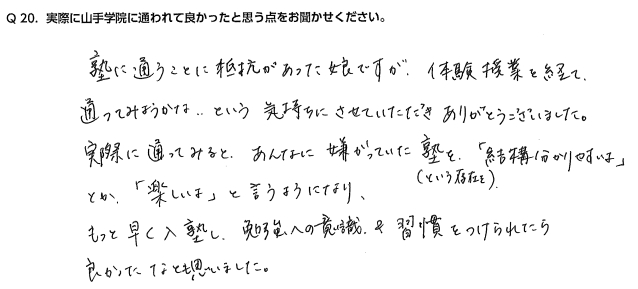 Q 20. 実際に山手学院に通われて良かったと思う点をお聞かせください。
塾に通うことに抵抗があった娘ですが、体験授業を経て、
通ってみようかな‥という気持ちにさせていただきありがとうございました。
実際に通ってみると、あんなに嫌がっていた塾を、「結構分かりやすいよ」
(という存在を)
とか、「楽しいよ」と言うようになり、
もっと早く入塾し、勉強への意識や習慣をつけられたら
良かったなとも思いました。